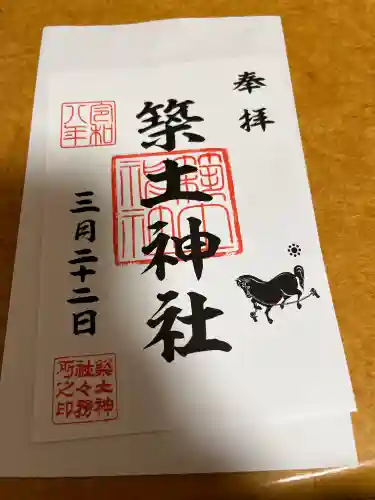 奉拝
築土神社
令和八年
三月二十二日
築土神
社々務
所之印